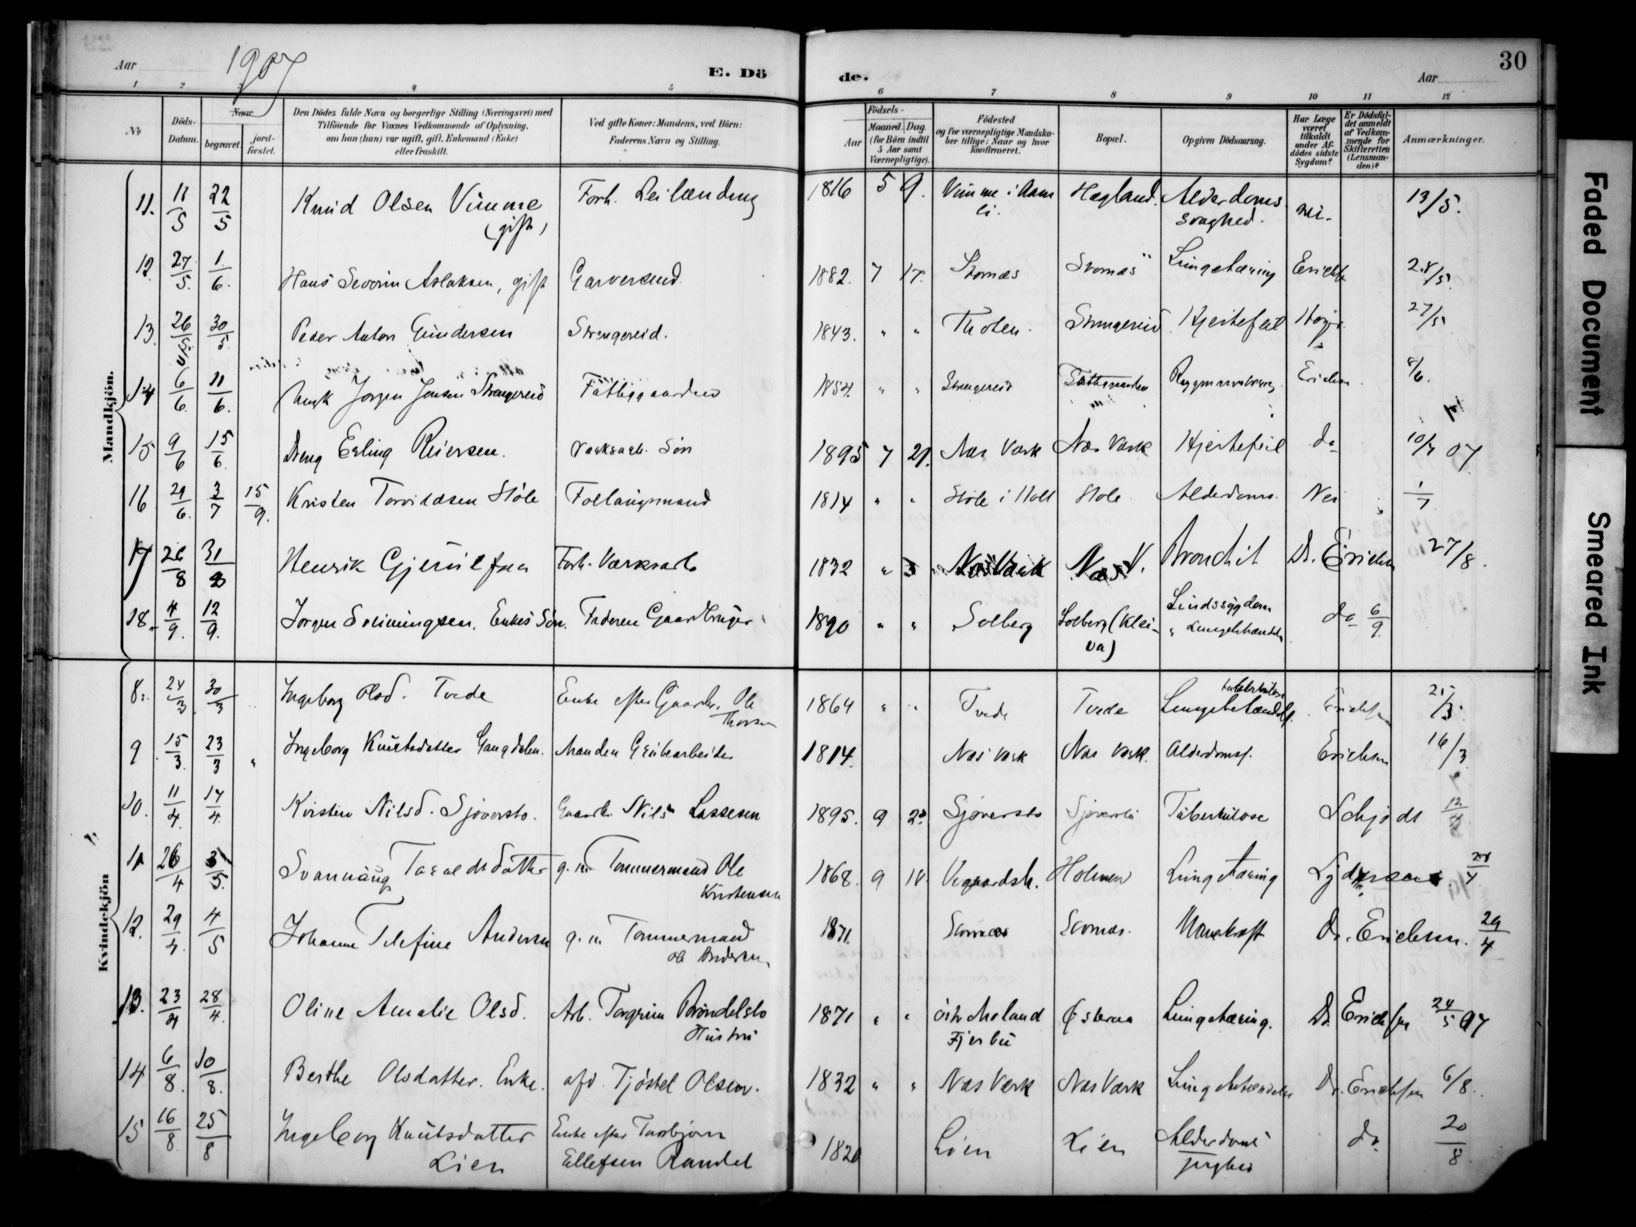 Aar 1907
E. Dö de.
Aar
30
1 2 3 4 5 6 7 8 9 10 11 12
№
Döds-Datum.
Naar
begravet.
jord-fæstet.
Den Dödes fulde Navn og borgerlige Stilling (Næringsvei) med
Tilföiende for Vaxnes Vedkommende af Oplysning,
om han (hun) var ugift, gift, Enkemand (Enke)
eller fraskilt.
Ved gifte Koner: Mandens, ved Börn:
Faderens Navn og Stilling.
Födsels-
Aar
Maaned. Dag.
(for Börn indtil
5 Aar samt
Værnepligtige).
Födested
og for værnepligtige Mandska-
ber tillige: Naar og hvor
konfirmeret.
Bopæl.
Opgiven Dödsaarsag.
Har Læge
været
tilkaldt
under Af-
dödes sidste
Sygdom?
Er Dödsfal-
det anmeldt
af Vedkom-
mende for
Skifteretten
(Lensman-
den)?
Anmærkninger.
Mandkjön.
11. 11/5 22/5 Knud Olsen Vimme (gift) Forh. Leilænding 1816 5 9. Vimme i Aamli. Hegland. Alderdoms svaghed. nei. 13/5.
12. 27/5. 1/6. Hans Severin Aslaksen, gift Garversvend. 1882. 7 17. Songe Lungetæring Erichs 28/5.
13. 26/5 30/5 Peder Anton Gundersen Strengereid. 1843. " " Tholen. Strengereid Hjertefeil 27/5
14 6/6. 11/6. Jörgen Jensen Strengereid Fattiggaarden 1854. " " Strengereid Erichsen 8/6.
15 9/6 15/6. Dreng Erling Reiersen. Værksarb. Sön 1895 7 29. Næs Værk Næs Værk Hjertefeil do 10/7 07
16 29/6. 3/7 15/9. Kristen Torvildsen Støle Forlaugsmand 1814 " " Støle i Holt Støle Alderdoms. Nei 1/7
17 26/8 31/8 Henrik Gjerulfsen Forh. Værksarb 1832 " Næs Værk Næs V. Bronchit Dr. Erichsen 27/8.
18. 4/9. 12/9. Jörgen Salimingsen. Enkes Sön. Faderen Gaardbruger. 1890 " " Solberg Solberg (Kleiva) Sindssygdom " Lungebetændelse do 6/9.
Kvindekjön
8. 24/3 30/3 Ingeborg Olsd. Tvede Enke efter Gaardbr. Ole Thorsen 1864 " " Tvede Tvede tuberkuløse Lungebetændels. Erichsen 25/3
9 15/3. 23/3 Ingeborg Knutsdatter Gangdalen. Manden Grubearbeider 1814. Næs Værk Næs Værk. Alderdomss. Erichsen 16/3
10. 11/4. 17/4. Kirstine Nilsd. Sjöversto. Gaardbr. Nils Lassesen 1895. 9 22 Sjöversto Sjöversto Tuberkulose Schjödt 12/4
11 26/4 3/5. Svannaug Taraldsdatter g. m. Tømmermand Ole Kristensen 1868. 9 14. Vegaardsh. Holmen Lungetæring
12. 29/4. 4/5 Johanne Telefine Andersen g. m. Tømmermand Ole Andersen. 1871. Dr. Erichsen. 29/4
13. 23/4 28/4. Oline Amalie Olsd. Arb. Torgrim Brøndelsbo Hustru 1871 " " Lungetæring. Dr. Erichsen 24/5 07
14 6/8. 10/8. Berthe Olsdatter. Enke. afd. Tjöstel Olsen. 1832 " " Næs Værk Næs Værk Lungebetændelse Dr. Erichsen 6/8.
15 16/8 25/8 Ingeborg Knutsdatter Lien Enke efter Torbjørn Ellefsen Randal 1820 Lien Lien Alderdoms do 20/8
Faded Document
Smeared Ink